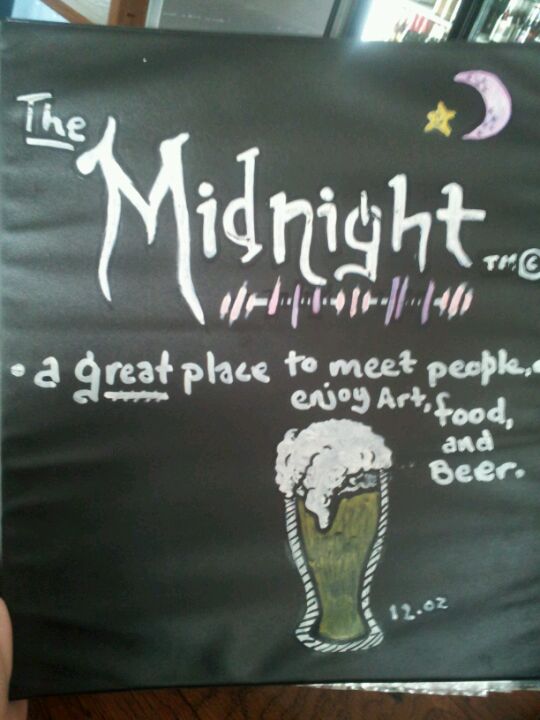 The
Midnight
TM ©
• a great place to meet people, •
enjoy Art,
food,
and
Beer.
12.oz